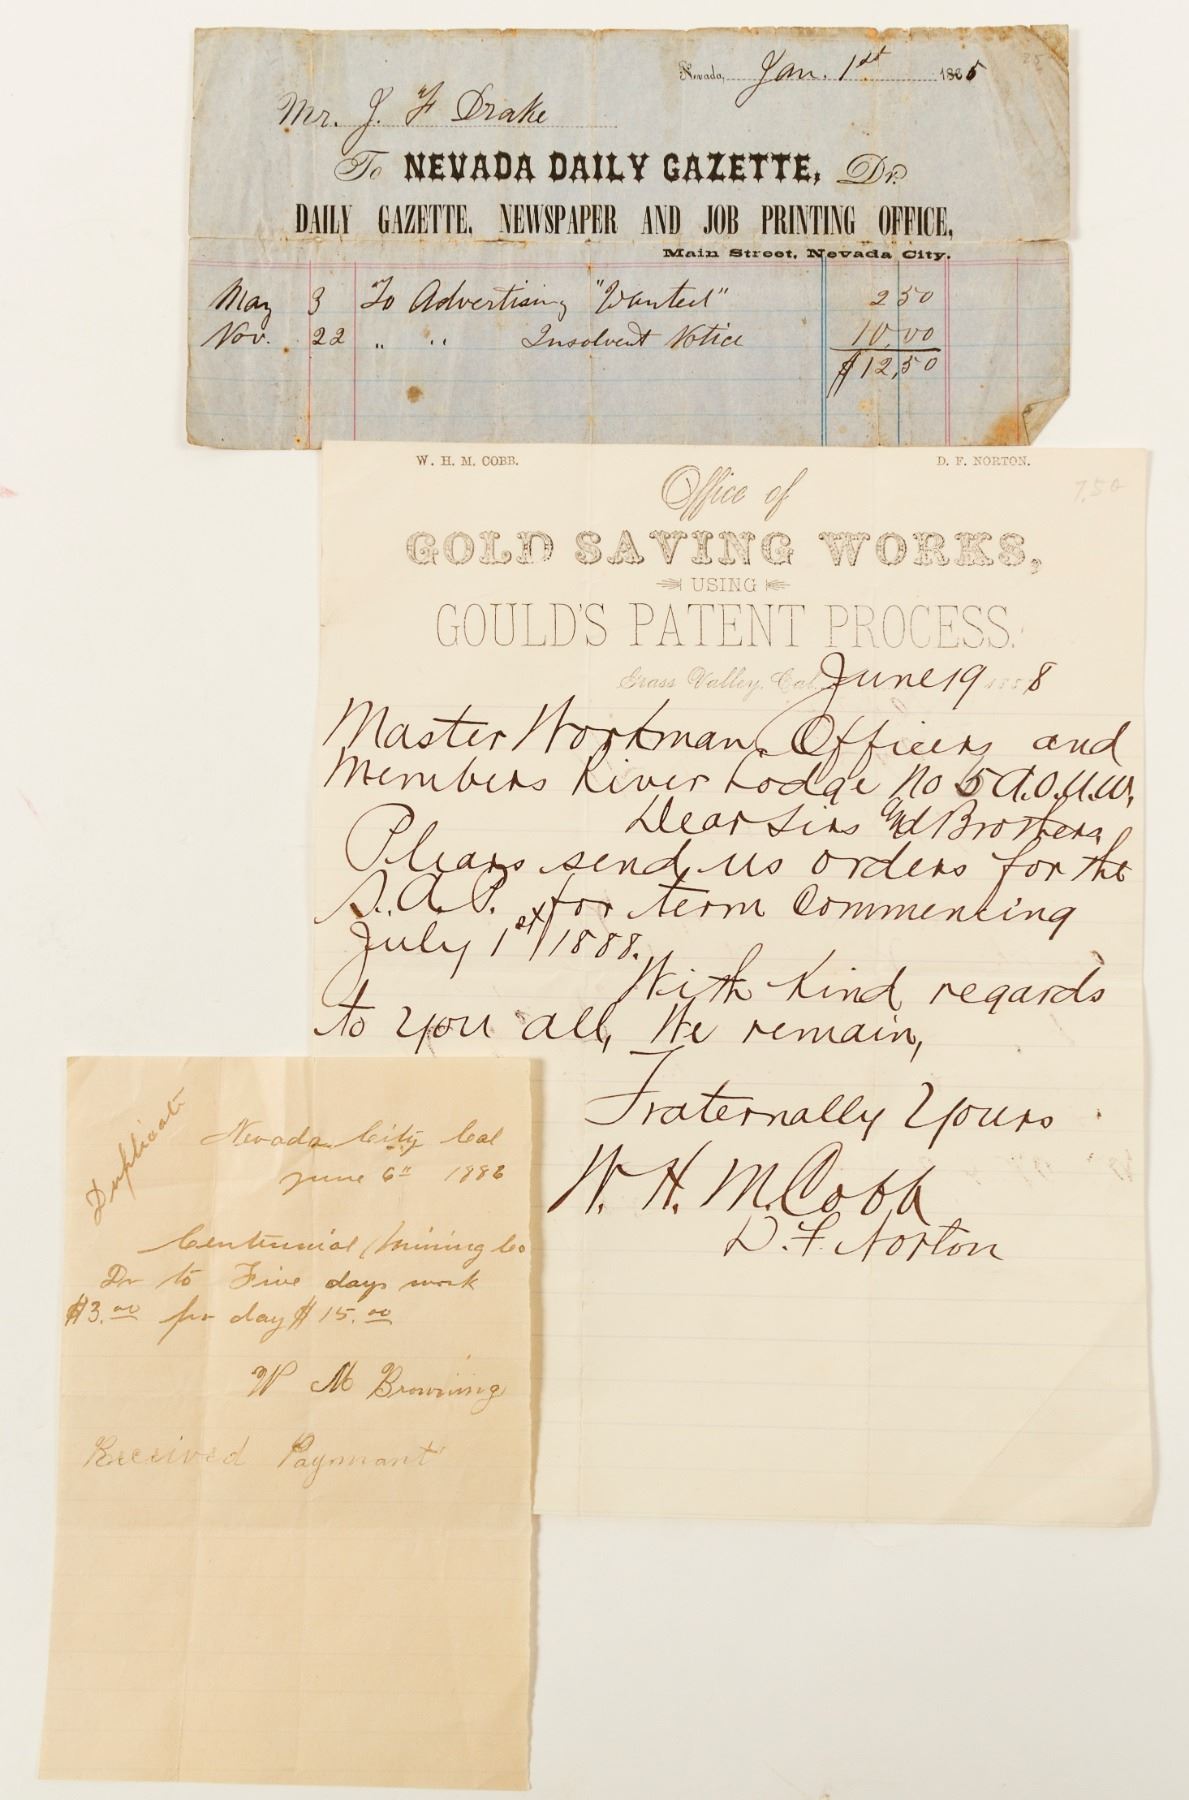 Nevada, Jan. 1st 1865
Mr. J. F Drake
To NEVADA DAILY GAZETTE, Dr.
DAILY GAZETTE, NEWSPAPER AND JOB PRINTING OFFICE,
Main Street, Nevada City.
May 3 To Advertising "Wanted" 2 50
Nov. 22 " " Insolvent Notice 10.00
$12,50
W. H. M. COBB. D. F. NORTON.
7.50
Office of
GOLD SAVING WORKS,
USING
GOULD'S PATENT PROCESS.
Grass Valley, Cal. June 19 1888
Master Workman, Officers and
Members River Lodge No 5 A.O.U.W.
Dear Sirs and Brothers,
Pleans send us orders for the
S.A.P. for term Commencing
July 1st 1888.
With Kind regards
to you all, We remain,
Fraternally Yours
W. H. M. Cobb
D. F. Norton
Duplicate
Nevada City Cal
June 6th 1886
Centennial Mining Co
Dr to Five days work
$3.00 pr day $15.00
W M Browning
Received Paymant